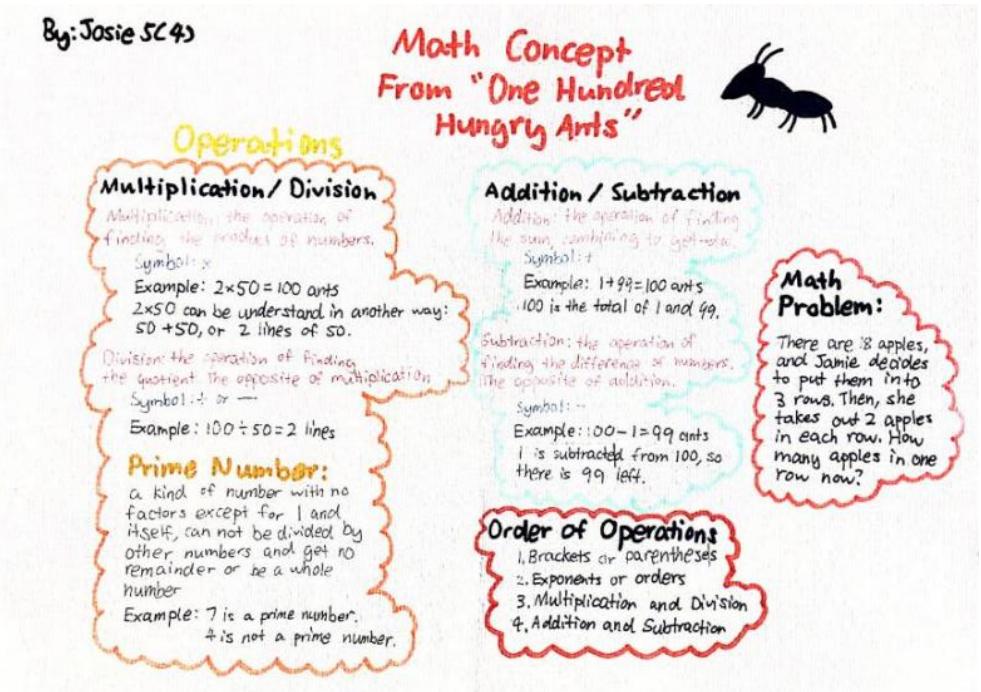 By: Josie 5(4)
Math Concept
From "One Hundred
Hungry Ants"
Operations
Multiplication / Division
Multiplication: the operation of
finding the product of numbers.
Symbol: ×
Example: 2×50=100 ants
2×50 can be understand in another way:
50+50, or 2 lines of 50.
Division: the operation of finding
the quotient. The opposite of multiplication
Symbol: ÷ or —
Example: 100÷50=2 lines
Prime Number:
a kind of number with no
factors except for 1 and
itself, can not be divided by
other numbers and get no
remainder or be a whole
number
Example: 7 is a prime number.
4 is not a prime number.
Addition / Subtraction
Addition: the operation of finding
the sum, combining to get
Symbol: +
Example: 1+99=100 ants
100 is the total of 1 and 99.
Subtraction: the operation of
finding the difference of numbers.
The opposite of addition.
Symbol: -
Example: 100-1=99 ants
1 is subtracted from 100, so
there is 99 left.
Order of Operations
1. Brackets or parentheses
2. Exponents or orders
3. Multiplication and Division
4. Addition and Subtraction
Math
Problem:
There are 8 apples,
and Jamie decides
to put them into
3 rows. Then, she
takes out 2 apples
in each row. How
many apples in one
row now?